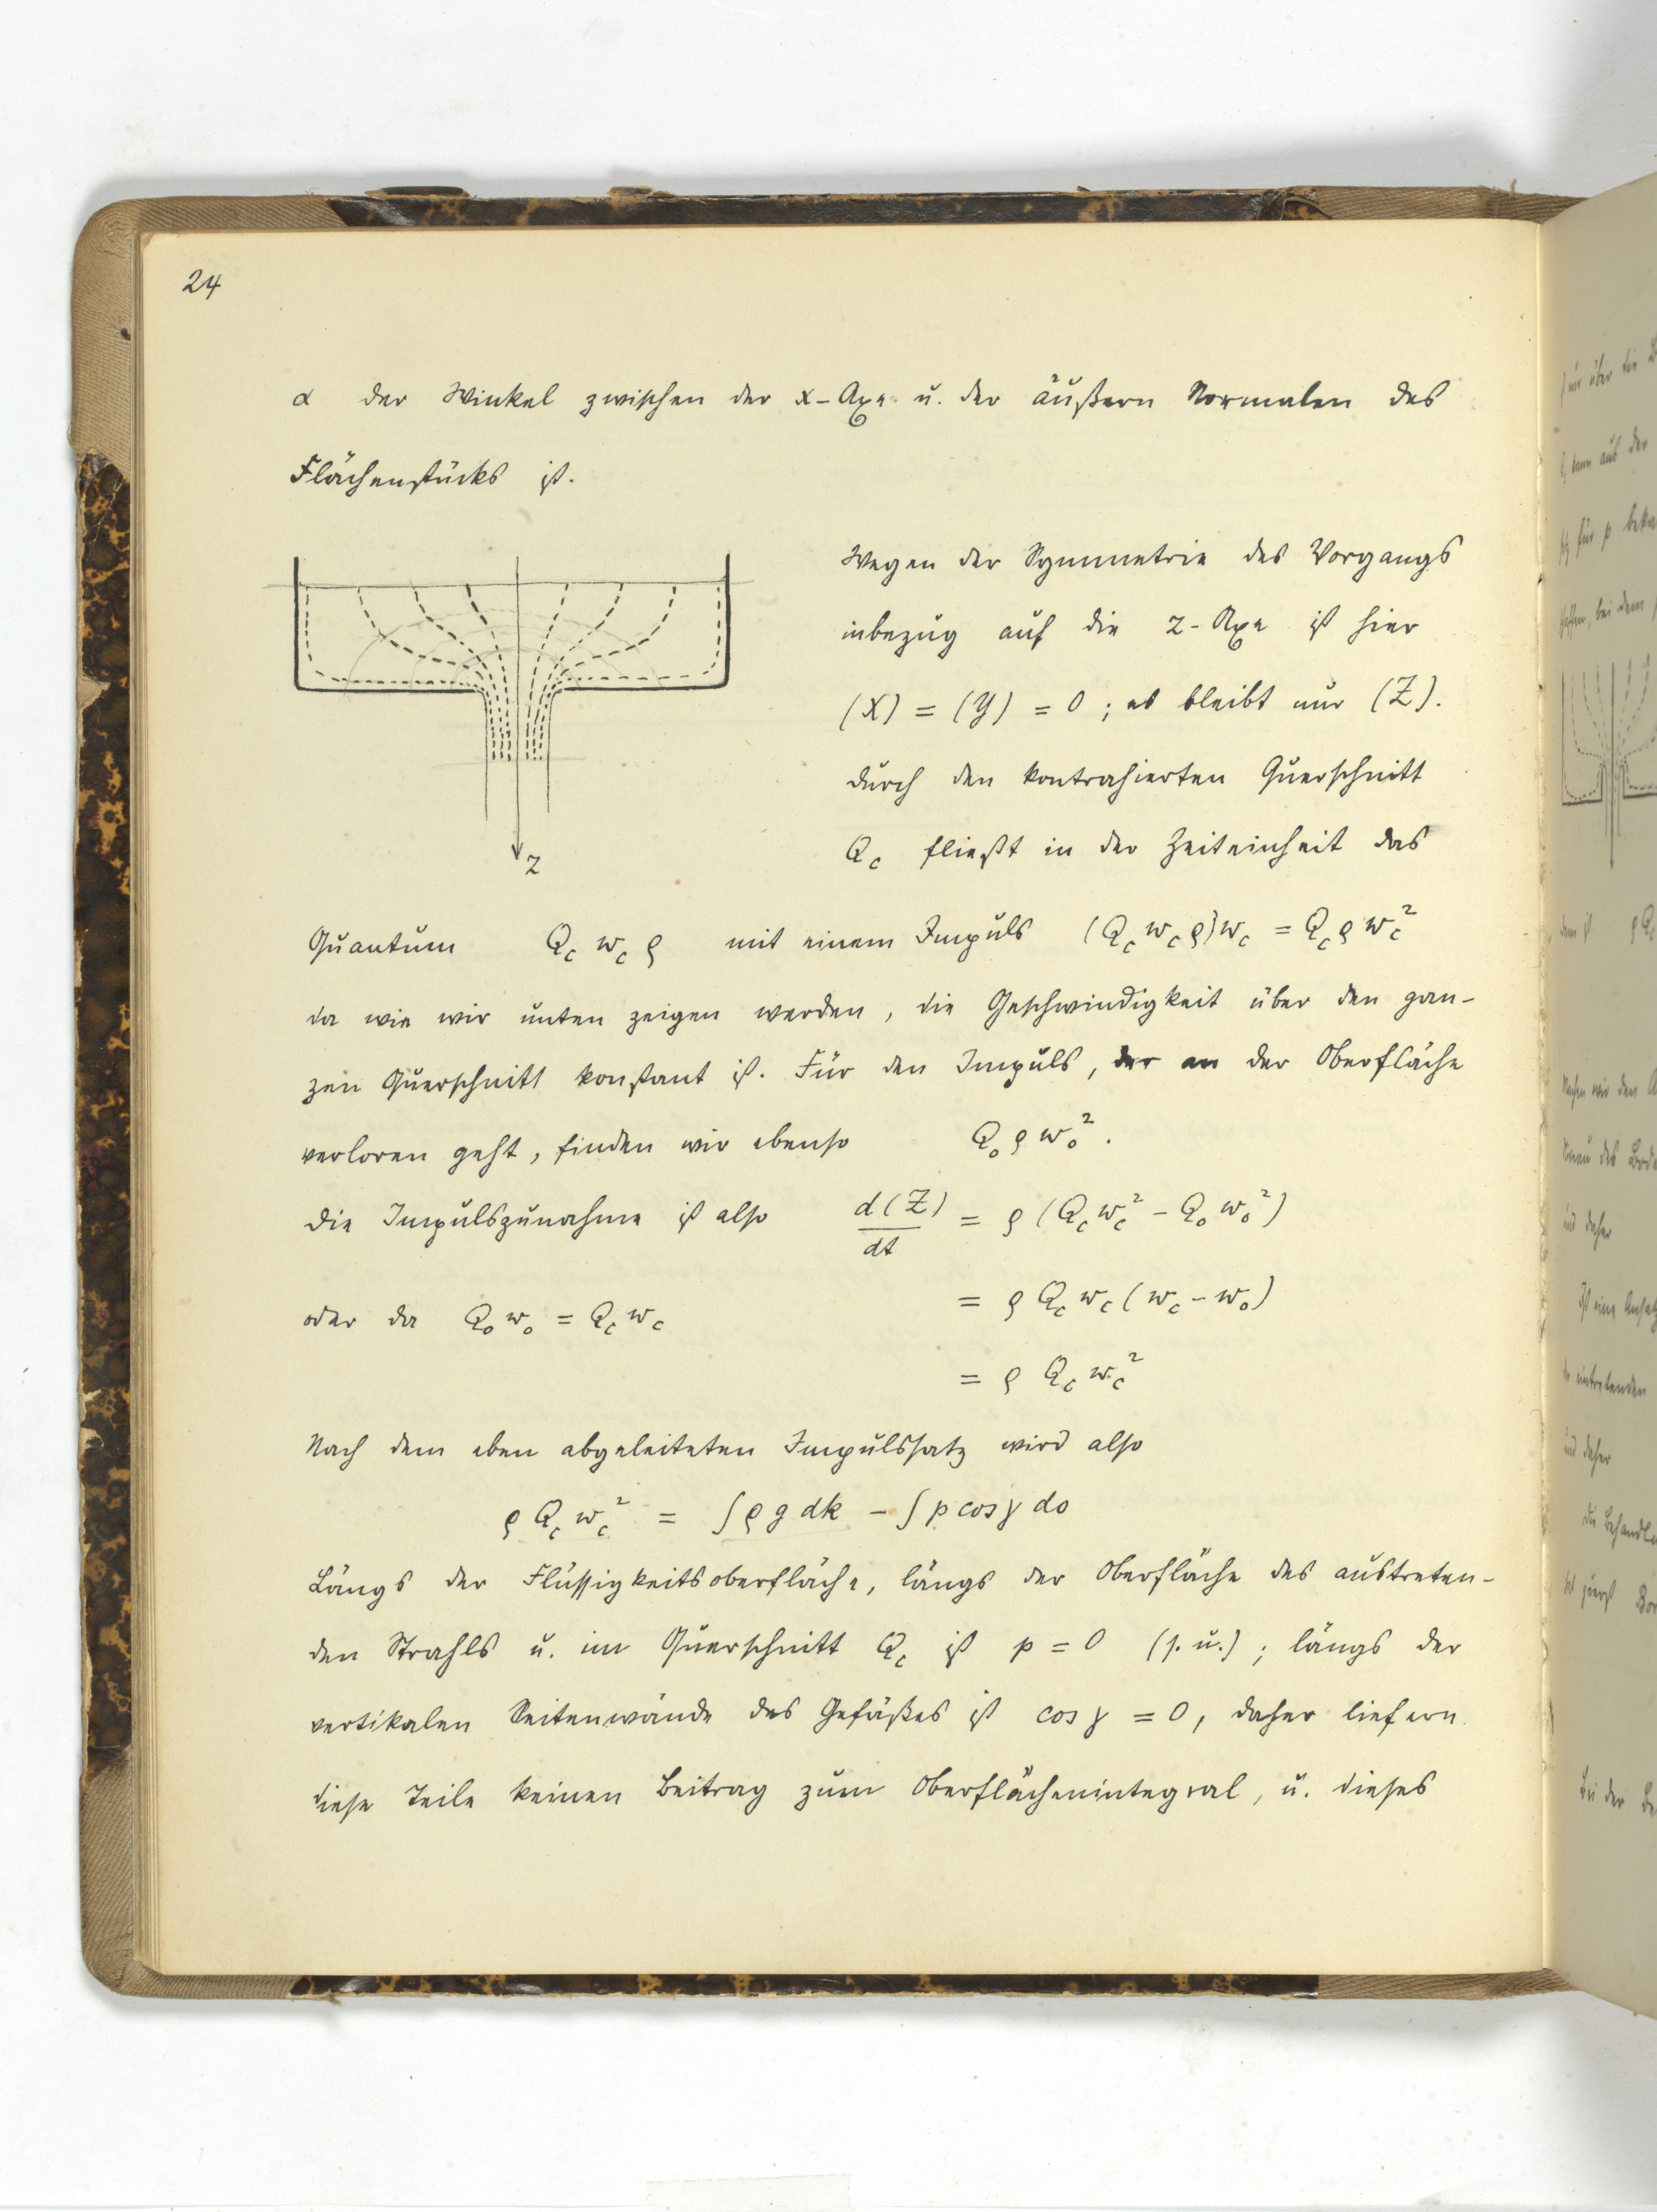 24
α der Winkel zwischen der x-Axe u. der äußern Normalen des
Flächenstücks ist.
Wegen der Symmetrie des Vorgangs
inbezug auf die z-Axe ist hier
(X) = (Y) = 0 ; es bleibt nur (Z).
Durch den kontrahierten Querschnitt
Q_c fließt in der Zeiteinheit das
z
Quantum Q_c w_c ϱ mit einem Impuls (Q_c w_c ϱ) w_c = Q_c ϱ w_c²
da wie wir unten zeigen werden, die Geschwindigkeit über den gan-
zen Querschnitt konstant ist. Für den Impuls, der an der Oberfläche
verloren geht, finden wir ebenso Q_o ϱ w_o² .
Die Impulszunahme ist also d(Z)/dt = ϱ (Q_c w_c² - Q_o w_o²)
oder da Q_o w_o = Q_c w_c = ϱ Q_c w_c (w_c - w_o)
= ϱ Q_c w_c²
Nach dem eben abgeleiteten Impulssatz wird also
ϱ Q_c w_c² = ∫ ϱ g dk - ∫ p cos γ do
Längs der Flüssigkeitsoberfläche, längs der Oberfläche des austreten-
den Strahls u. im Querschnitt Q_c ist p = 0 (s. u.) ; längs der
vertikalen Seitenwände des Gefäßes ist cos γ = 0, daher liefern
diese Teile keinen Beitrag zum Oberflächenintegral, u. dieses